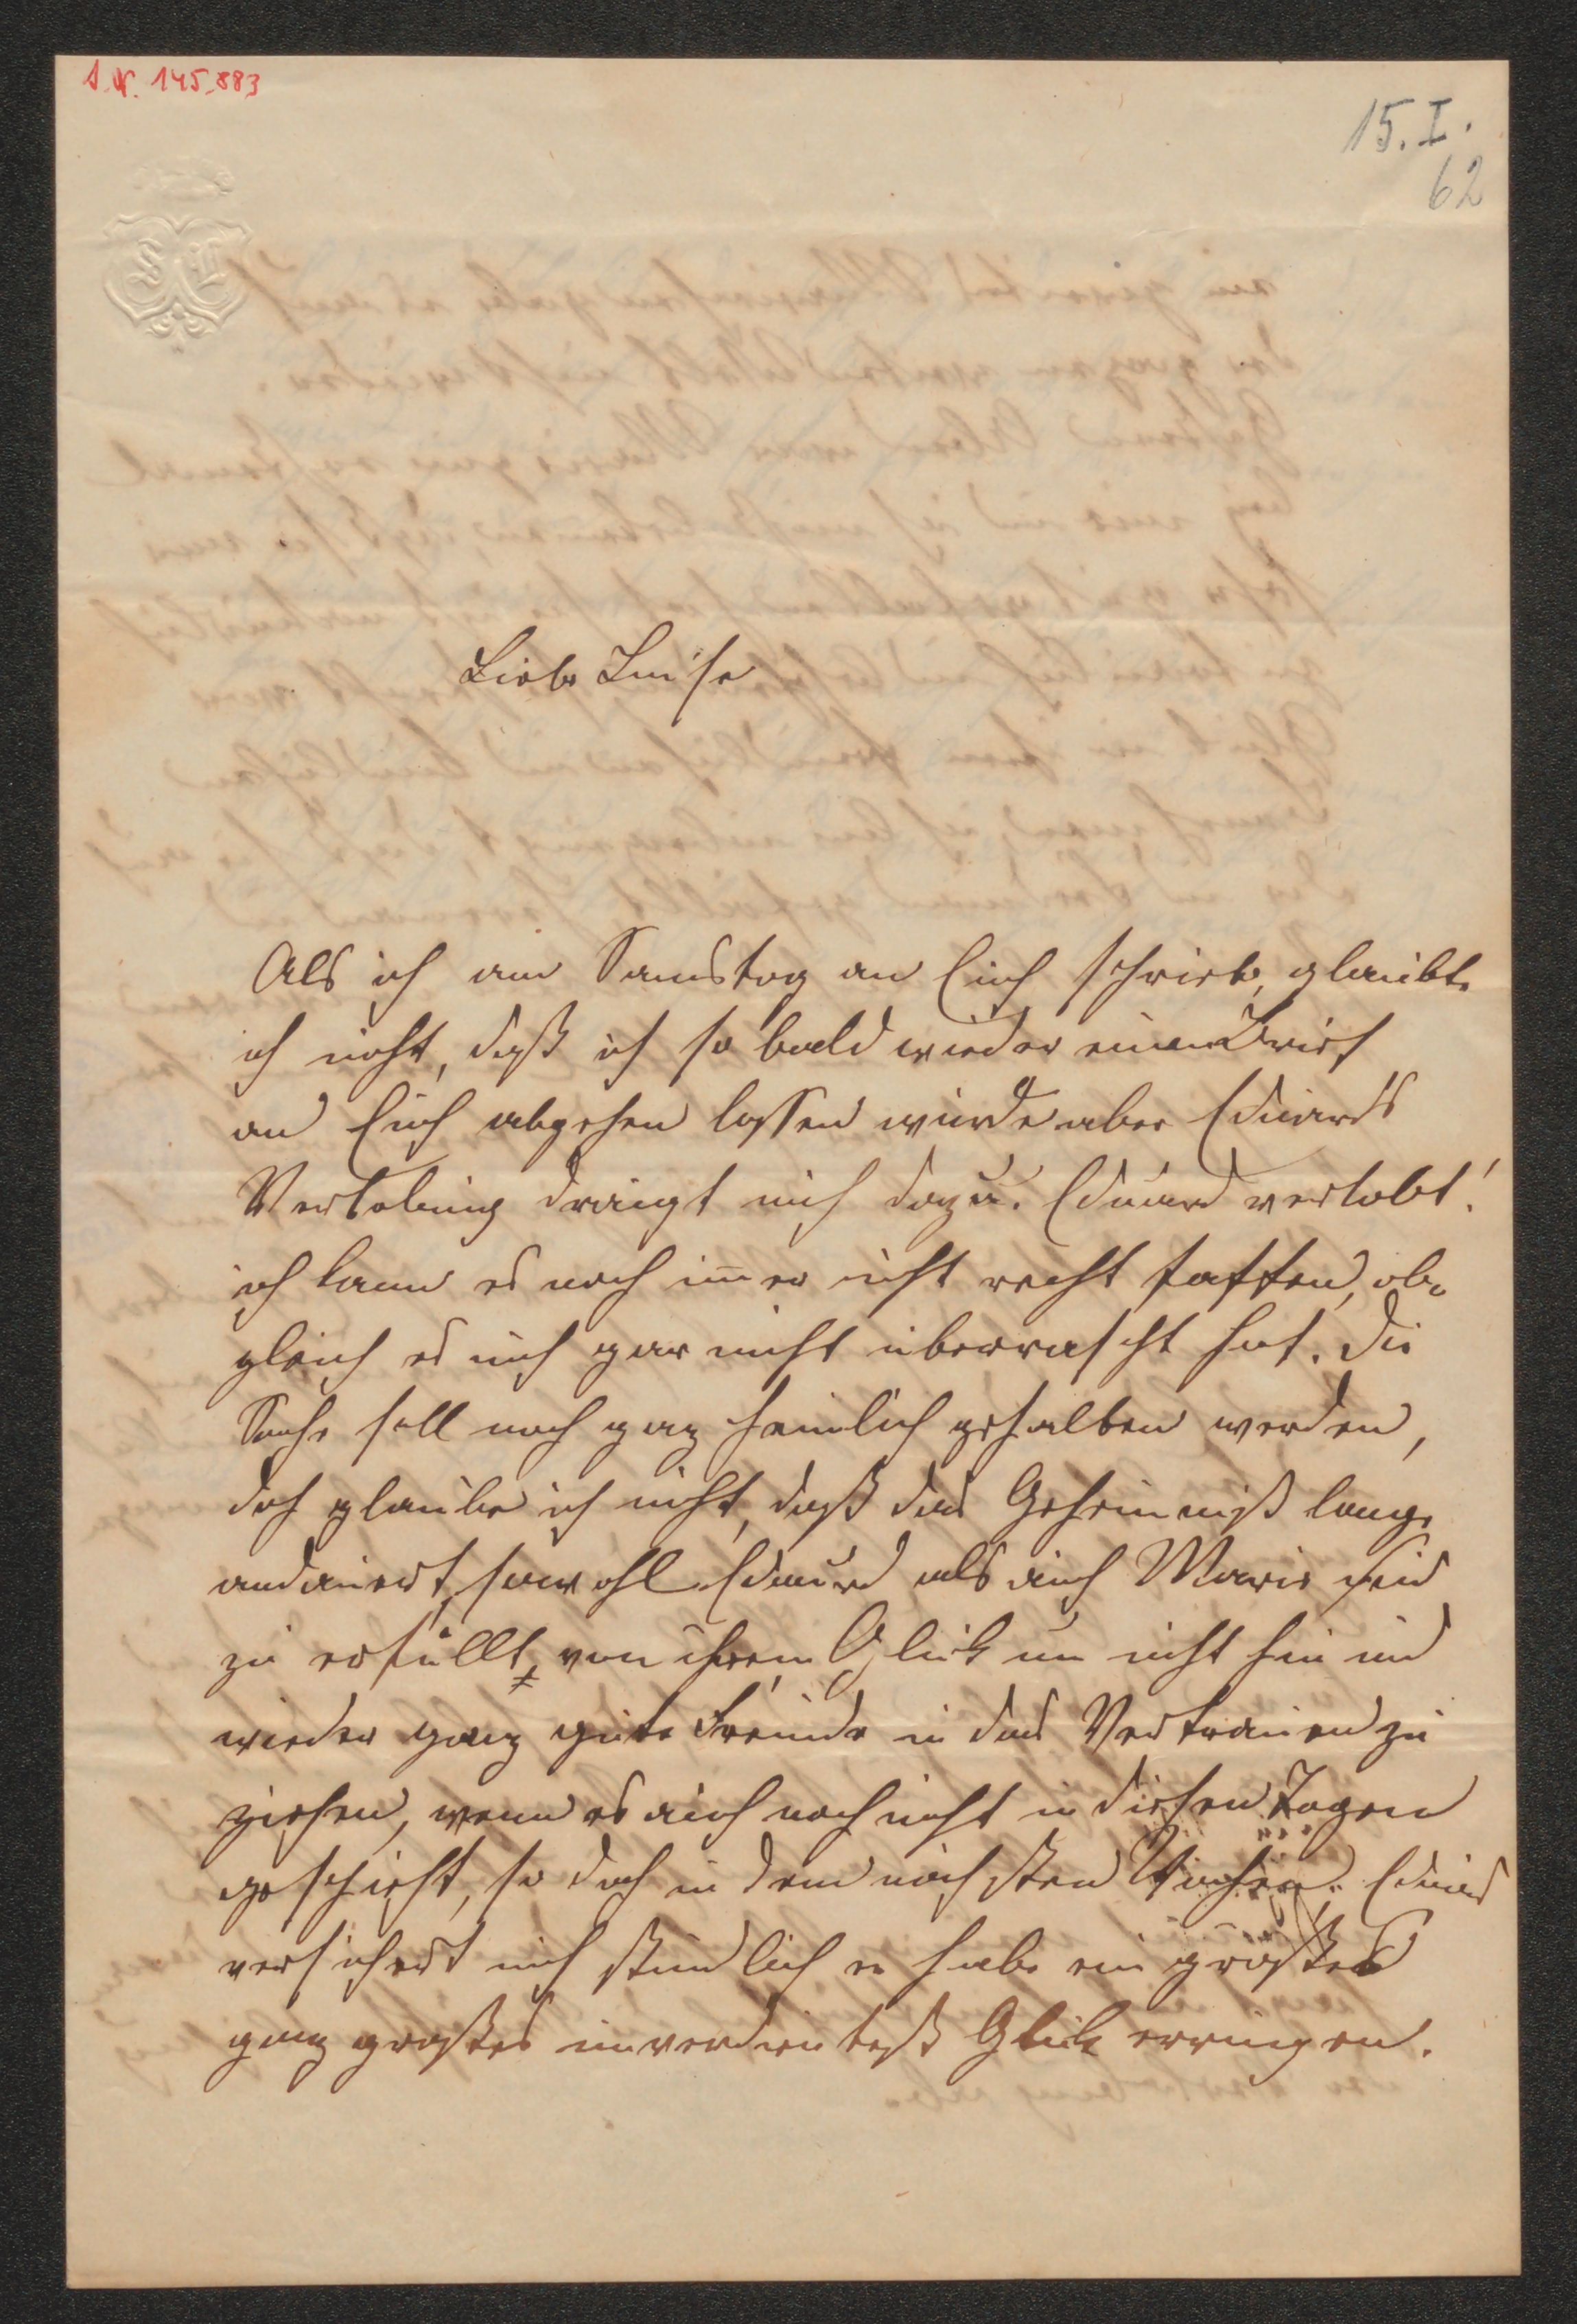 I.N. 145.883
15. I.
62
Liebe Luise
Als ich am Samstag an Euch schrieb, glaubte
ich nicht, daß ich so bald wieder einen Brief
an Euch abgehen lassen würde aber Eduards
Verlobung drängt mich dazu. Eduard verlobt!
ich kann es noch immer nicht recht fassen, ob-
gleich es mich gar nicht überrascht hat. Die
Sache soll noch ganz heimlich gehalten werden,
doch glaube ich nicht, daß das Geheimniß lange
andauert, sowohl Eduard als auch Marie sind
zu erfüllt von ihrem Glück um nicht hin und
wieder ganz gute Freunde in das Vertrauen zu
ziehen, wenn es auch noch nicht in diesen Tagen
geschieht, so doch in den nächsten Wochen. Eduard
versichert mich stündlich er habe ein großes
ganz großes unverdientes Glück errungen.